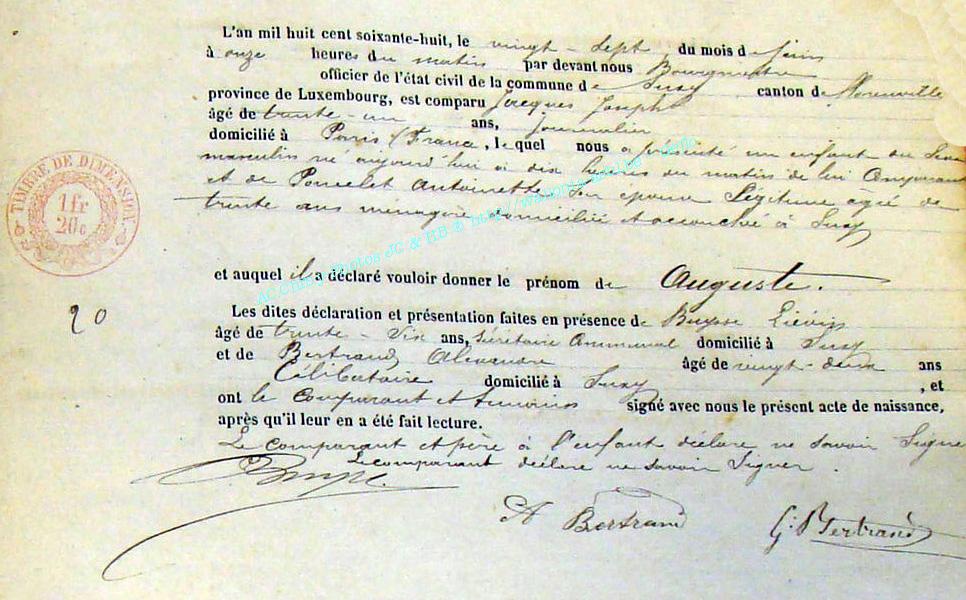 L'an mil huit cent soixante-huit, le vingt-sept du mois de Juin
à onze heures du matin par devant nous Bourgmestre
officier de l'état civil de la commune de Suxy canton de
province de Luxembourg, est comparu Jacques Joseph
âgé de trente-un ans, journalier
domicilié à Paris (France, le quel nous a présenté un enfant du Sexe
masculin né aujourd'hui à dix heures du matin de lui Comparant
et de Poncelet Antoinette son épouse Légitime agée de
trente ans ménagère domiciliée et accouchée à Suxy
TIMBRE DE DIMENSION
1 fr
20 c
et auquel il a déclaré vouloir donner le prénom de Auguste.
20
Les dites déclaration et présentation faites en présence de Buysse Liévin
âgé de trente-six ans, Sécrétaire Communal domicilié à Suxy
et de Bertrand Alexandre âgé de vingt-deux ans
Célibataire domicilié à Suxy, et
ont le Comparant et témoins signé avec nous le présent acte de naissance,
après qu'il leur en a été fait lecture.
Le comparant et père à l'enfant déclare ne savoir Signer
Le comparant déclare ne savoir Signer.
A Bertrand
G. Bertrand